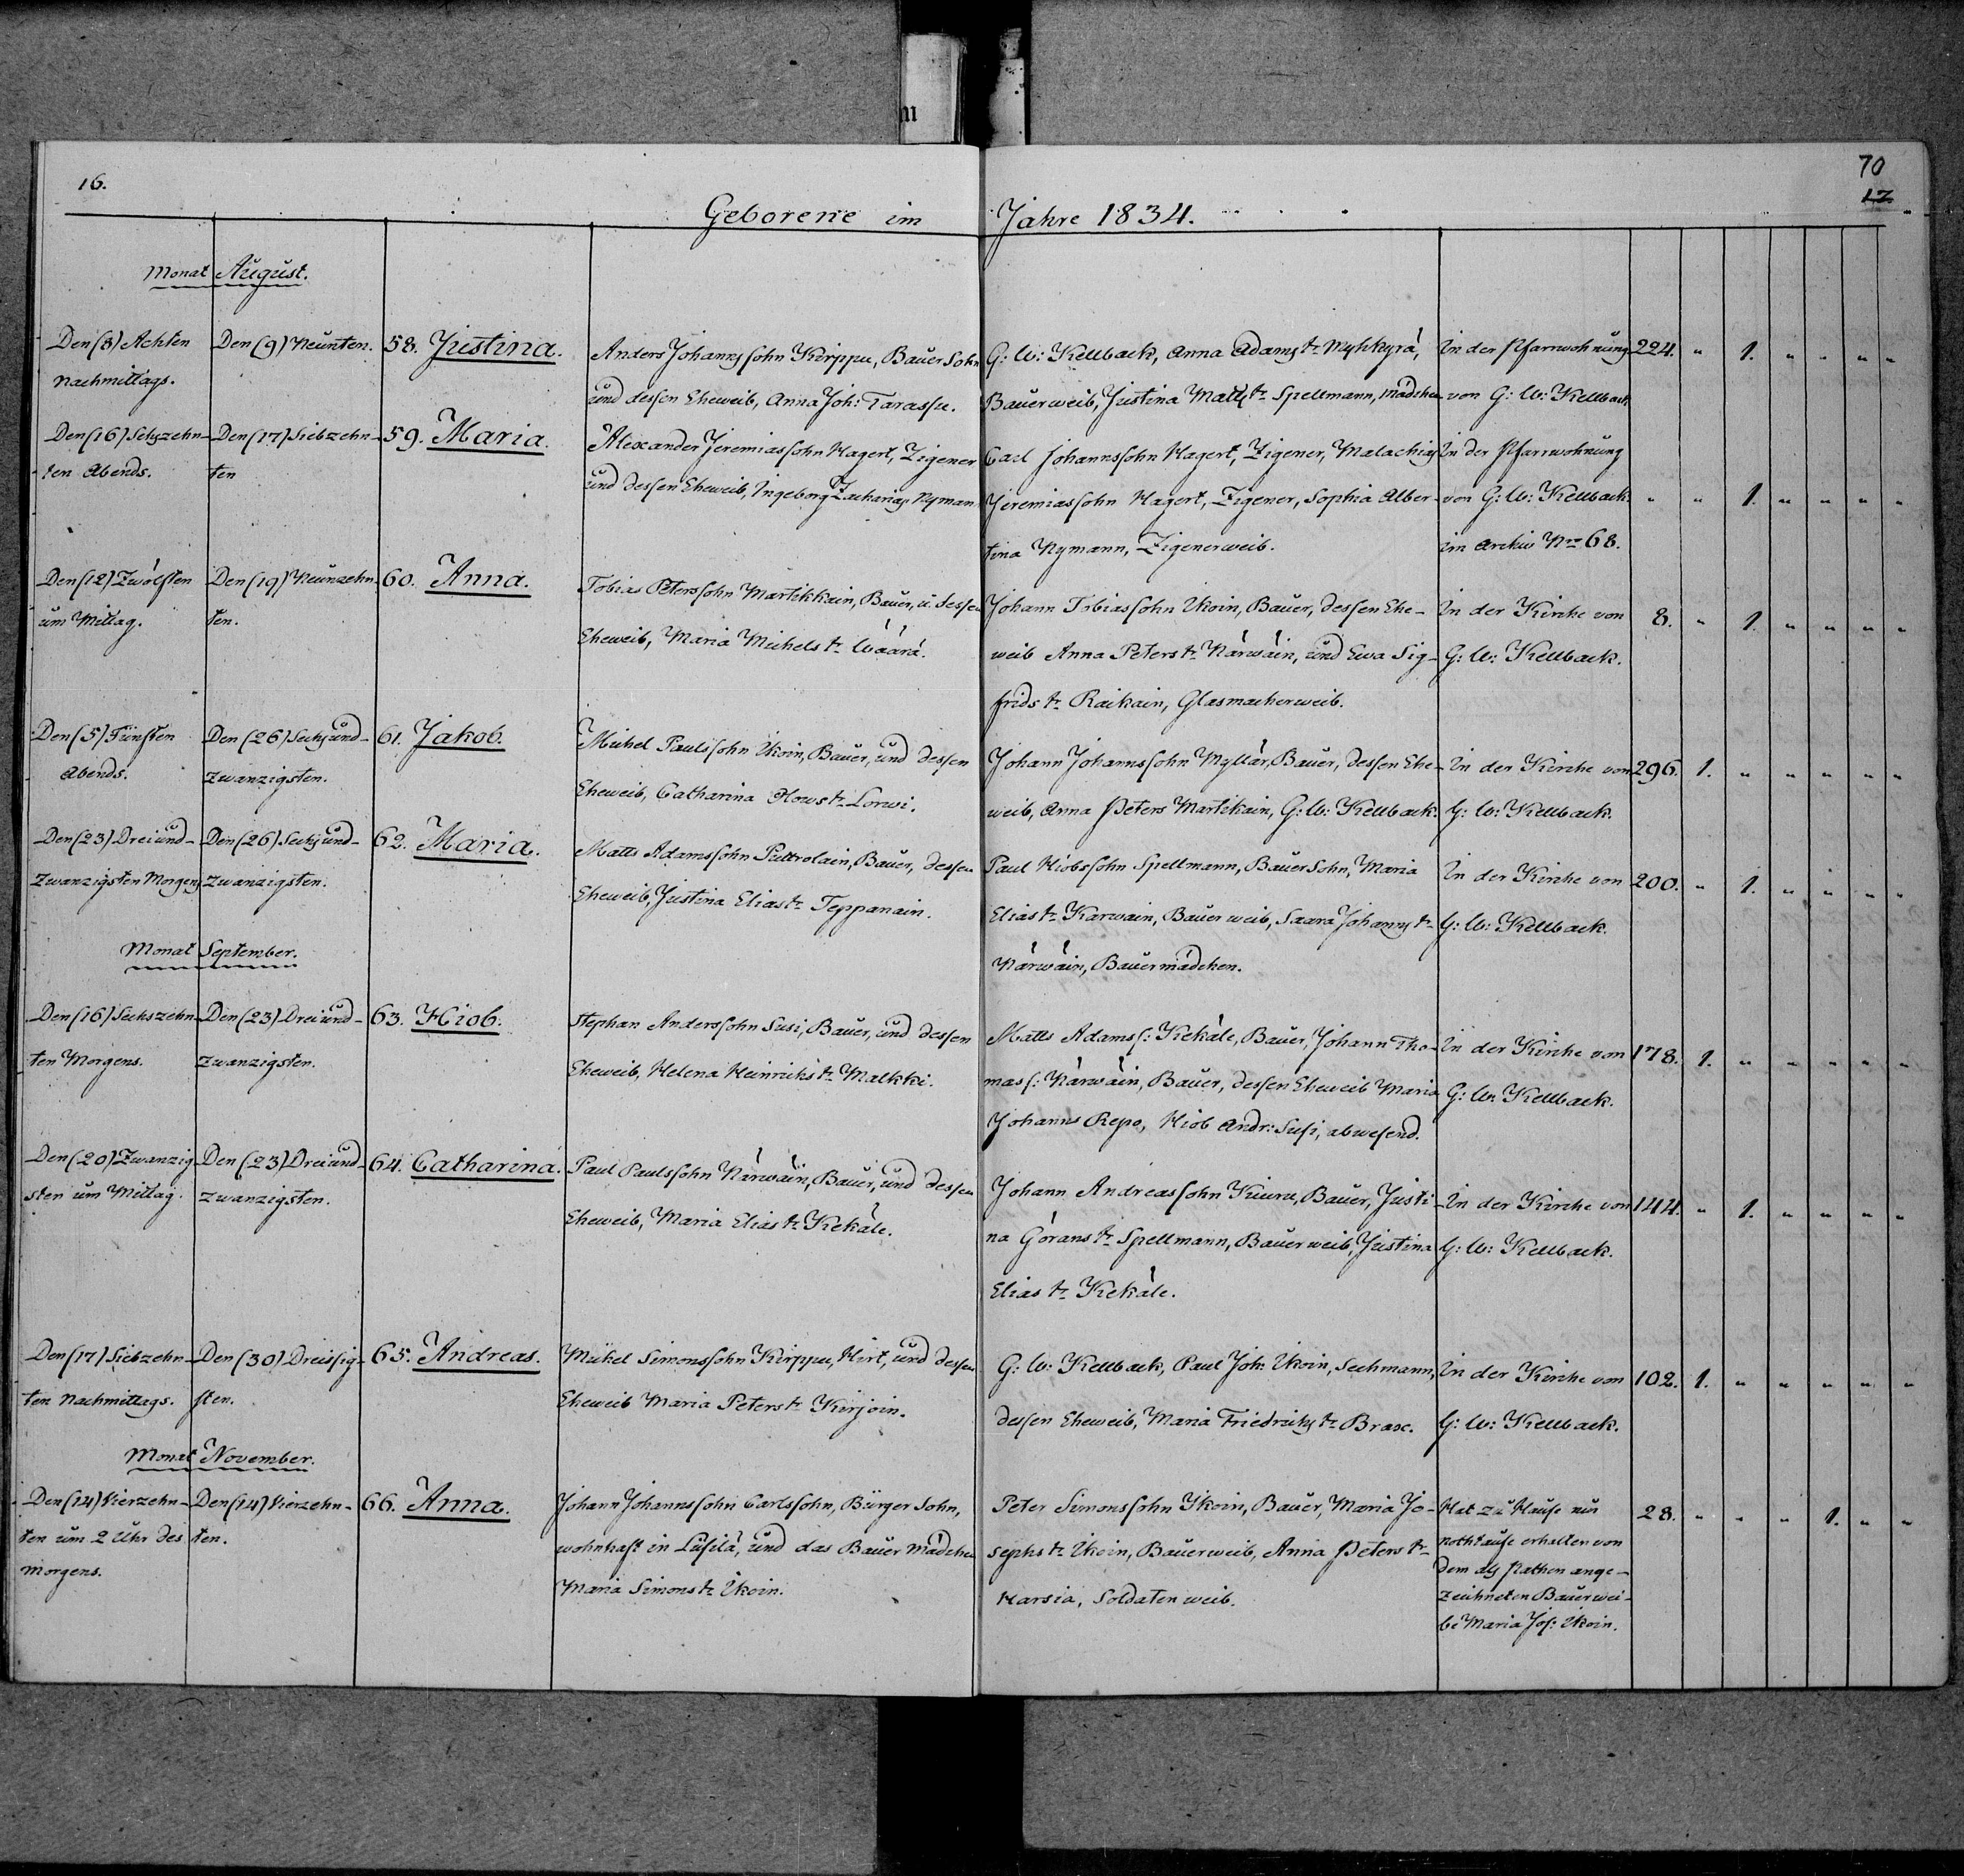 16.
70
17
Geborene im Jahre 1834.
Monat August.
Den (8) Achten
Nachmittags.
Den (9) Neunten.
58. Justina.
Anders Johannssohn Kirppu, Bauer Sohn
und dessen Eheweib, Anna Joh: Tarassu.
G: W: Kellback, Anna Adams tr Nyhkyrä,
Bauerweib, Justina Matts tr Spellmann, Mädchen
In der Pfarrwohnung
von G: W: Kellback
224. " 1. " " " "
Den (16) Sechzehn-
ten Abends.
Den (17) Siebzehn-
ten
59. Maria.
Alexander Jeremiassohn Hagert, Zigener
und dessen Eheweib, Ingeborg Zacharias Nyman
Carl Johannssohn Hagert, Zigener, Malachias
Jeremiassohn Hagert, Zigener, Sophia Alber-
tina Nymann, Zigenerweib.
In der Pfarrwohnung
von G: W: Kellback.
im Archiv Nro 68.
" " 1. " " " "
Den (12) Zwölften
um Mittag.
Den (19) Neunzehn-
ten.
60. Anna.
Tobias Peterssohn Martikkain, Bauer, u. dessen
Eheweib, Maria Michels tr Wäärä.
Johann Tobiassohn Ikoin, Bauer, dessen Ehe-
weib Anna Peters tr Närwäin, und Ewa Sig-
frids tr Raikain, Glasmacherweib.
In der Kirche von
G: W: Kellback.
8. " 1. " " " "
Den (5) Fünften
Abends.
Den (26) Sechsund-
zwanzigsten.
61. Jakob.
Michel Paulssohn Ikoin, Bauer, und dessen
Eheweib, Catharina Flows tr Lorwi.
Johann Johannssohn Myllär, Bauer, dessen Ehe-
weib, Anna Peters Martikain, G: W: Kellback.
In der Kirche von
G: W: Kellback.
296. 1. " " " " "
Den (23) Dreiund-
zwanzigsten Morgens
Den (26) Sechsund-
zwanzigsten.
62. Maria.
Matts Adamssohn Puttrolain, Bauer, dessen
Eheweib, Justina Elias tr Teppanain.
Paul Hiobssohn Spellmann, Bauer Sohn, Maria
Elias tr Karwain, Bauer weib, Saara Johanns tr
Närwäin, Bauermädchen.
In der Kirche von
G: W: Kellback.
200. " 1. " " " "
Monat September.
Den (16) Sechszehn-
ten Morgens.
Den (23) Dreiund-
zwanzigsten.
63. Hiob.
Stephan Anderssohn Susi, Bauer, und dessen
Eheweib, Helena Heinrichs tr Malkki.
Matts Adams s: Kekäle, Bauer, Johann Tho-
mas s: Närwäin, Bauer, dessen Eheweib Maria
Johanns Repo, Hiob Andr: Susi, abwesend.
In der Kirche von
G: W: Kellback.
178. 1. " " " " "
Den (20) Zwanzig-
sten um Mittag.
Den (23) Dreiund-
zwanzigsten.
64. Catharina.
Paul Paulssohn Närwäin, Bauer, und dessen
Eheweib, Maria Elias tr Kekäle.
Johann Andreassohn Kiuru, Bauer, Justi-
na Görans tr Spellmann, Bauerweib, Justina
Elias tr Kekäle.
In der Kirche von
G: W: Kellback.
144. " 1. " " " "
Den (17) Siebzehn-
ten Nachmittags.
Den (30) Dreissig-
sten.
65. Andreas.
Michel Simonssohn Kirppu, Hirt, und dessen
Eheweib Maria Peters tr Kirjoin.
G: W: Kellback, Paul Joh: Ikoin, Sechmann,
dessen Eheweib, Maria Friedrichs tr Brax.
In der Kirche von
G: W: Kellback.
102. 1. " " " " "
Monat November.
Den (14) Vierzehn-
ten um 2 Uhr des
Morgens.
Den (14) Vierzehn-
ten.
66. Anna.
Johann Johannssohn Carlssohn, Bürger Sohn,
wohnhaft in Lüsilä, und das Bauer Mädchen
Maria Simons tr Ikoin.
Peter Simonssohn Ikoin, Bauer, Maria Jo-
sephs tr Ikoin, Bauerweib, Anna Peters tr
Harsia, Soldaten weib.
Hat zu Hause nur
Nothtaufe erhalten von
dem als Pathen ange-
zeichneten Bauerwei-
be Maria Jos: Ikoin.
28. " " " 1. " "